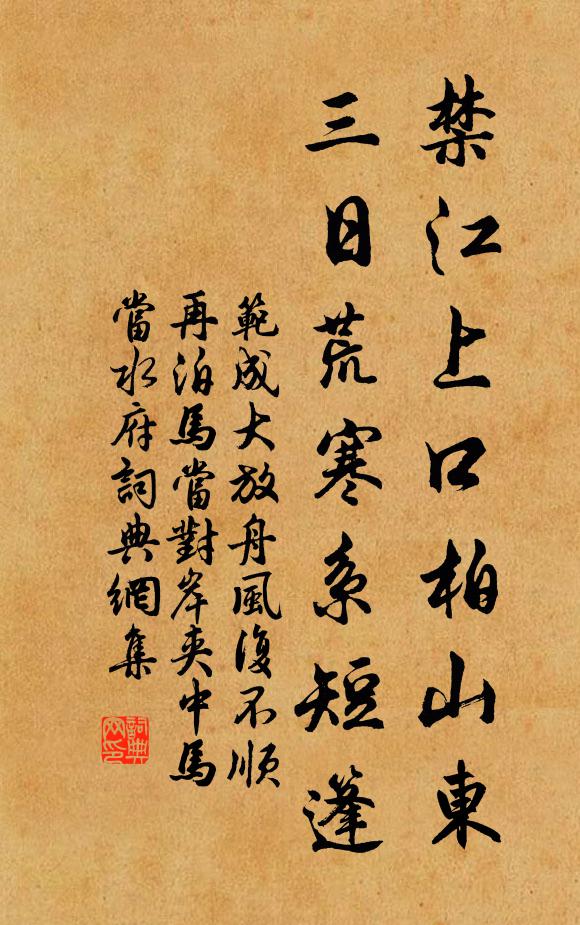 禁江上口柏山東
三日荒寒系短篷
範成大放舟風復不順
再泊馬當對岸夾中馬
當水府詞典網集
詞典
网印